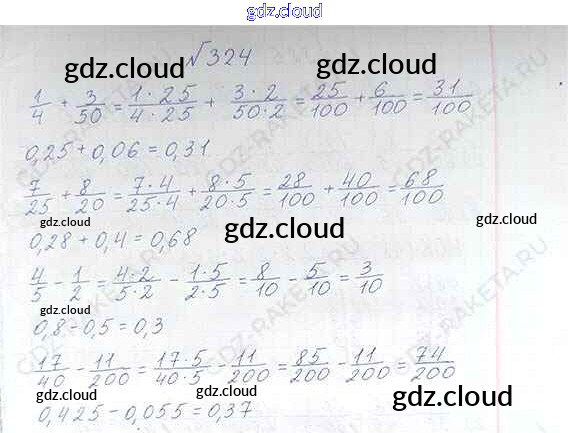 gdz.cloud
√324
gdz.cloud gdz.cloud
1/4 + 3/50 = 1·25/4·25 + 3·2/50·2 = 25/100 + 6/100 = 31/100
0,25 + 0,06 = 0,31
7/25 + 8/20 = 7·4/25·4 + 8·5/20·5 = 28/100 + 40/100 = 68/100
gdz.cloud gdz.cloud gdz.cloud
0,28 + 0,4 = 0,68
4/5 - 1/2 = 4·2/5·2 - 1·5/2·5 = 8/10 - 5/10 = 3/10
gdz.cloud gdz.cloud
0,8 - 0,5 = 0,3
17/40 - 11/200 = 17·5/40·5 - 11/200 = 85/200 - 11/200 = 74/200
gdz.cloud gdz.cloud
0,425 - 0,055 = 0,37
GDZ-RAKETA.RU